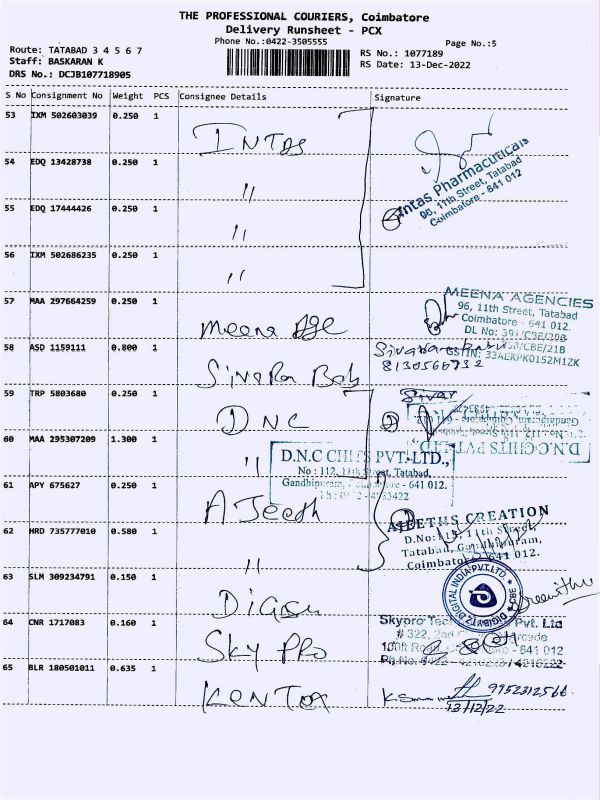 THE PROFESSIONAL COURIERS, Coimbatore
Delivery Runsheet - PCX
Phone No.:0422-3505555
Page No.:5
Route: TATABAD 3 4 5 6 7
Staff: BASKARAN K
DRS No.: DCJB107718905
RS No.: 1077189
RS Date: 13-Dec-2022
S No Consignment No Weight PCS Consignee Details Signature
53 IXM 502603039 0.250 1 INTAS
54 EDQ 13428738 0.250 1 "
Intas Pharmaceuticals
96, 11th Street, Tatabad
Coimbatore - 641 012
55 EDQ 17444426 0.250 1 "
56 IXM 502686235 0.250 1 "
57 MAA 297664259 0.250 1 Meena Age
MEENA AGENCIES
96, 11th Street, Tatabad
Coimbatore - 641 012.
DL No:
GSTIN: 33AEKPK0152M1ZK
58 ASD 1159111 0.800 1 Sivara Bab
59 TRP 5803680 0.250 1 D.N.C
60 MAA 295307209 1.300 1 "
D.N.C CHITS PVT.LTD.,
No : 112, 11th Street, Tatabad,
Gandhipuram, - 641 012.
61 APY 675627 0.250 1 AJeeth
AJEETHS CREATION
D.No: 11th Street,
Tatabad, Gandhipuram,
Coimbatore - 641 012.
62 HRD 735777010 0.580 1 "
63 SLM 309234791 0.150 1
DIGIBYTZ DIGITAL INDIA PVT.LTD. CBE
64 CNR 1717083 0.160 1 Sky PRO
Skypro Pvt. Ltd
# 322,
- 641 012
65 BLR 180501011 0.635 1
9952312566
13/12/22